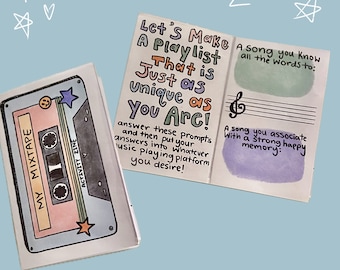 MY MIXTAPE
ACTIVITY ZINE
Let's Make
A playlist
That is
Just as
unique as
you Are!
answer these prompts
and then put your
answers into whatever
music playing platform
you desire!
A song you know
all the words to:
A song you associate
with a strong happy
memory: